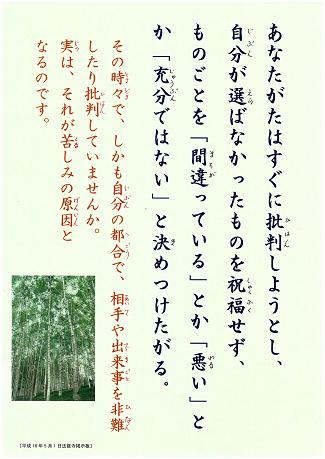 あなたがたはすぐに批判しようとし、
自分が選ばなかったものを祝福せず、
ものごとを「間違っている」とか「悪い」と
か「充分ではない」と決めつけたがる。
その時々で、しかも自分の都合で、相手や出来事を非難
したり批判していませんか。
実は、それが苦しみの原因と
なるのです。
【平成18年5月1日法話掲示板】